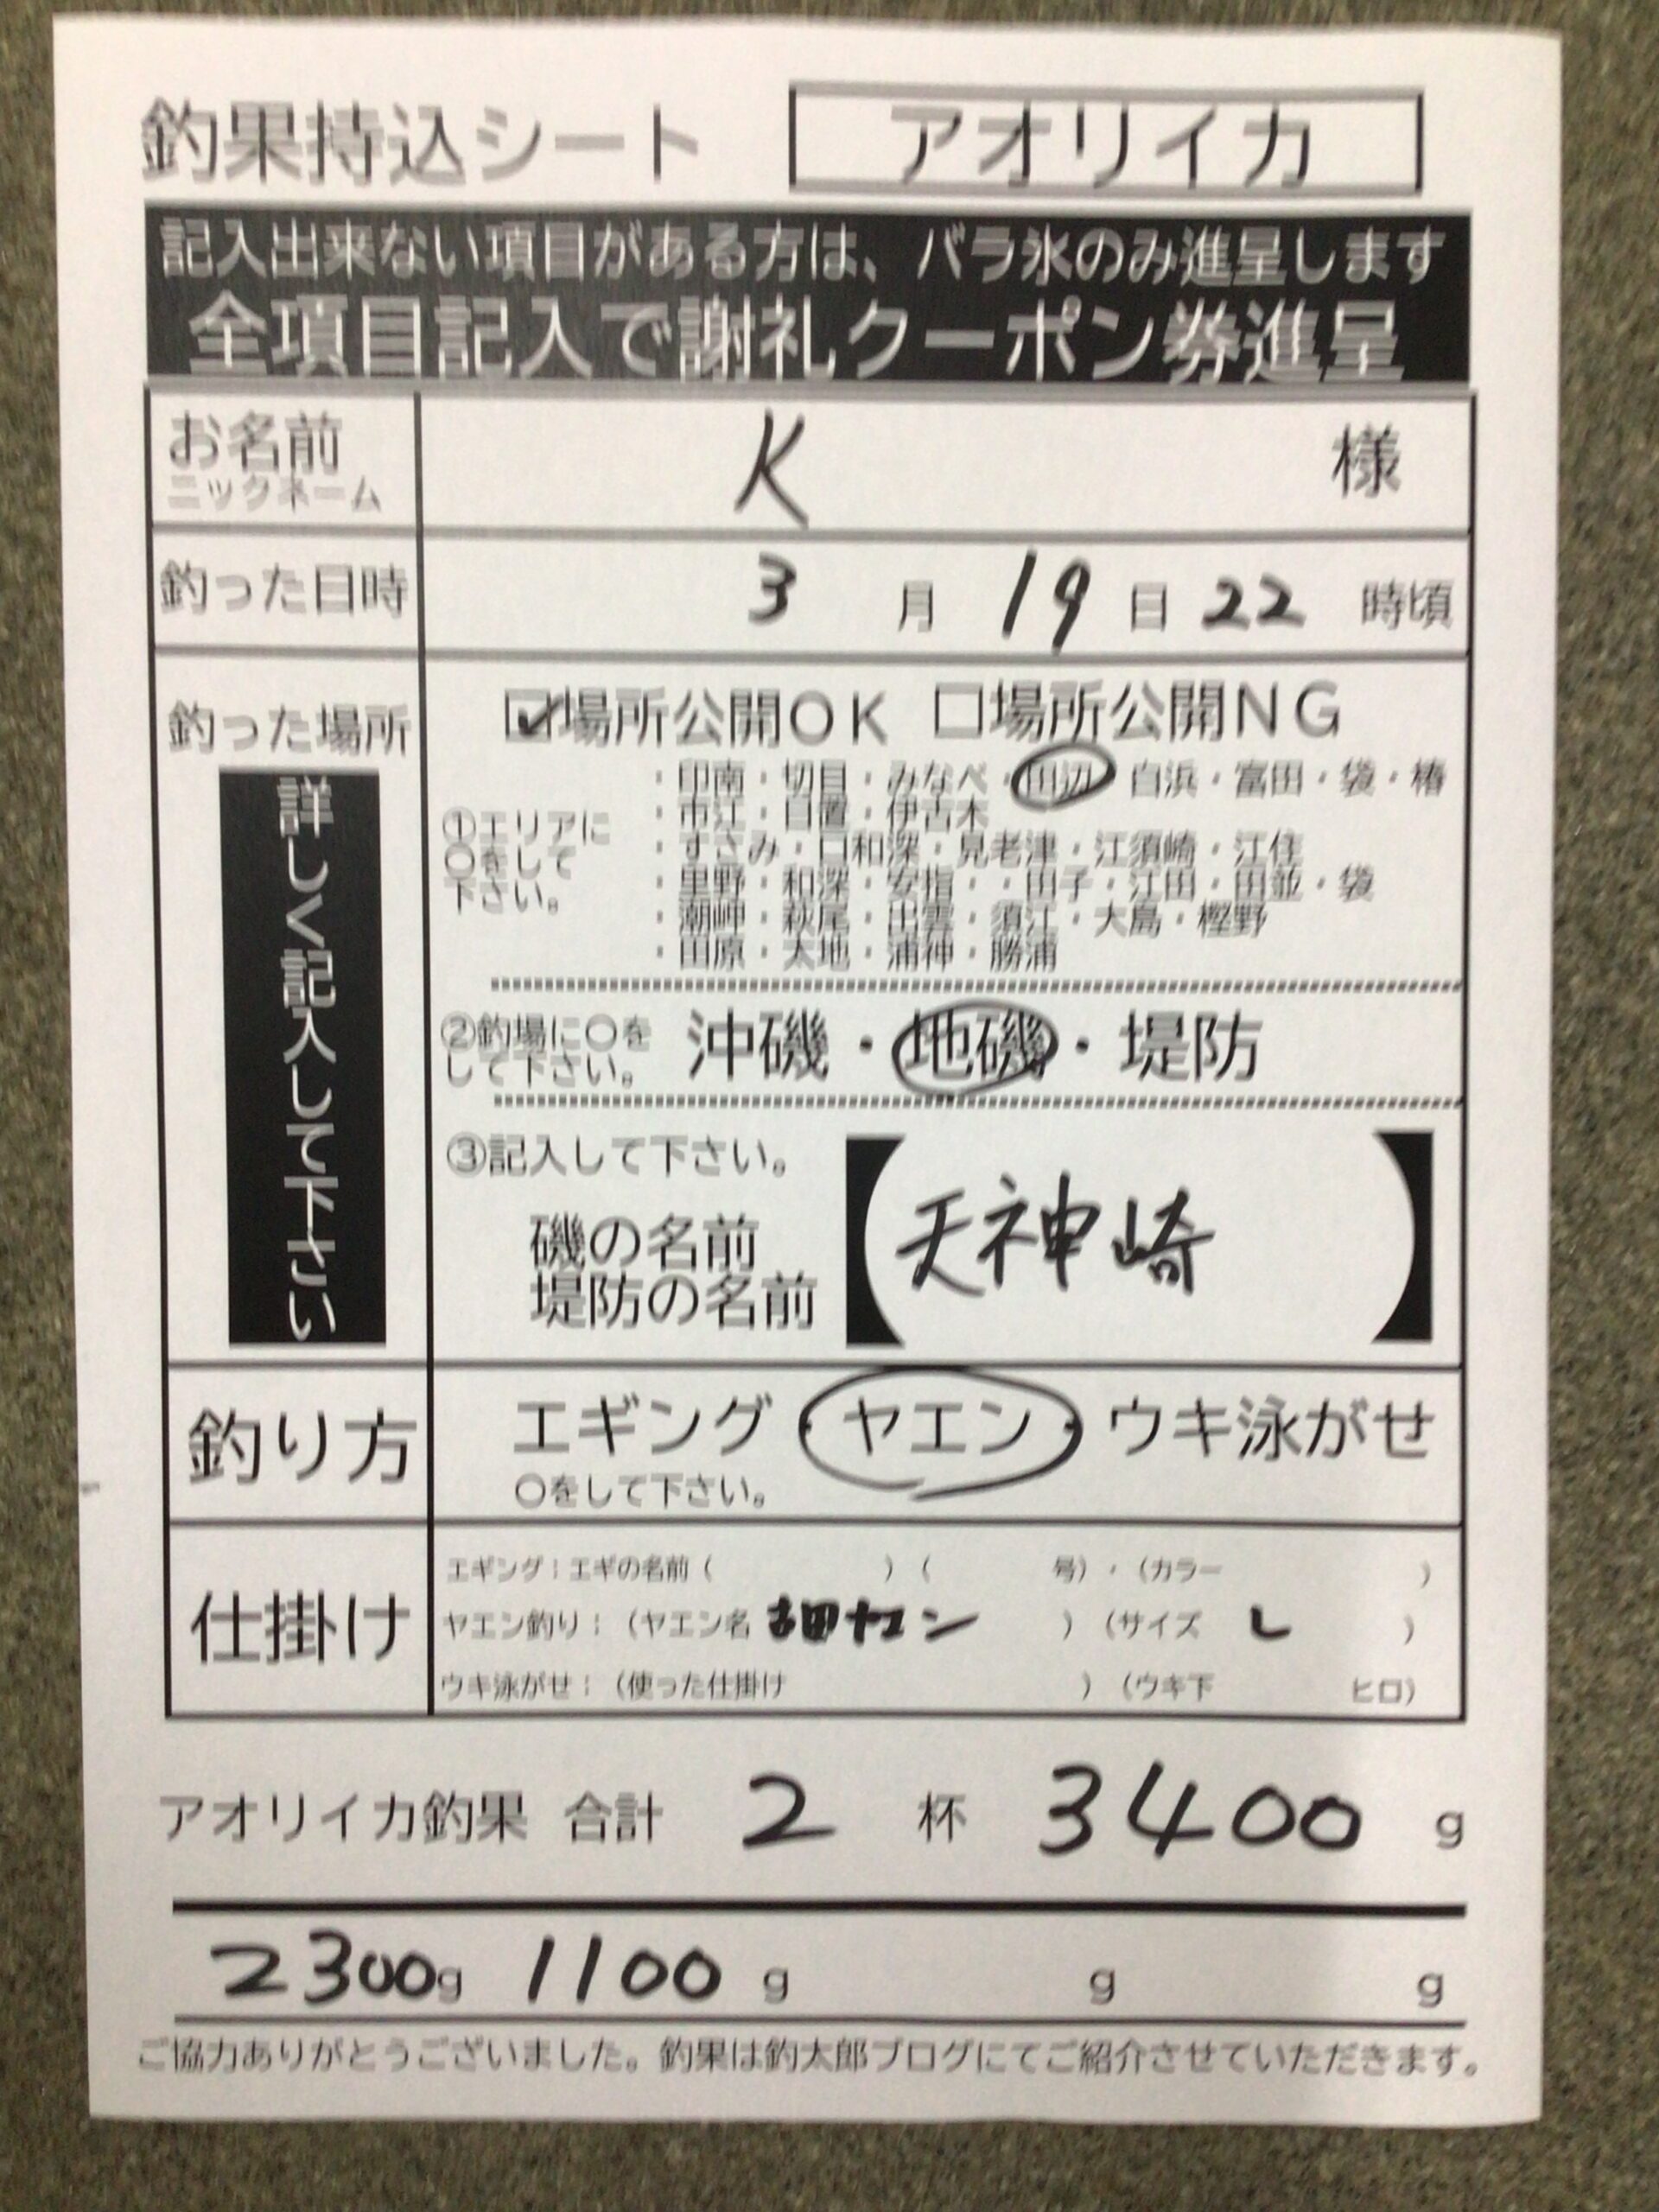 釣果持込シート アオリイカ
記入出来ない項目がある方は、バラ氷のみ進呈します
全項目記入で謝礼クーポン券進呈
お名前 K 様
ニックネーム
釣った日時 3 月 19 日 22 時頃
釣った場所
詳しく記入して下さい
☑場所公開OK □場所公開NG
①エリアに
〇をして
下さい。
・印南・切目・みなべ・田辺・白浜・富田・袋・椿
・市江・日置・伊古木
・すさみ・口和深・見老津・江須崎・江住
・里野・和深・安指・・田子・江田・田並・袋
・潮岬・萩尾・出雲・須江・大島・樫野
・田原・太地・浦神・勝浦
②釣場に〇を
して下さい。
沖磯・地磯・堤防
③記入して下さい。
磯の名前
堤防の名前
【天神崎】
釣り方 エギング・ヤエン・ウキ泳がせ
〇をして下さい。
仕掛け
エギング：エギの名前（ ）（ 号）・（カラー ）
ヤエン釣り：（ヤエン名 ヤエン ）（サイズ L ）
ウキ泳がせ：（使った仕掛け ）（ウキ下 ヒロ）
アオリイカ釣果 合計 2 杯 3400 g
2300g 1100 g g g
ご協力ありがとうございました。釣果は釣太郎ブログにてご紹介させていただきます。